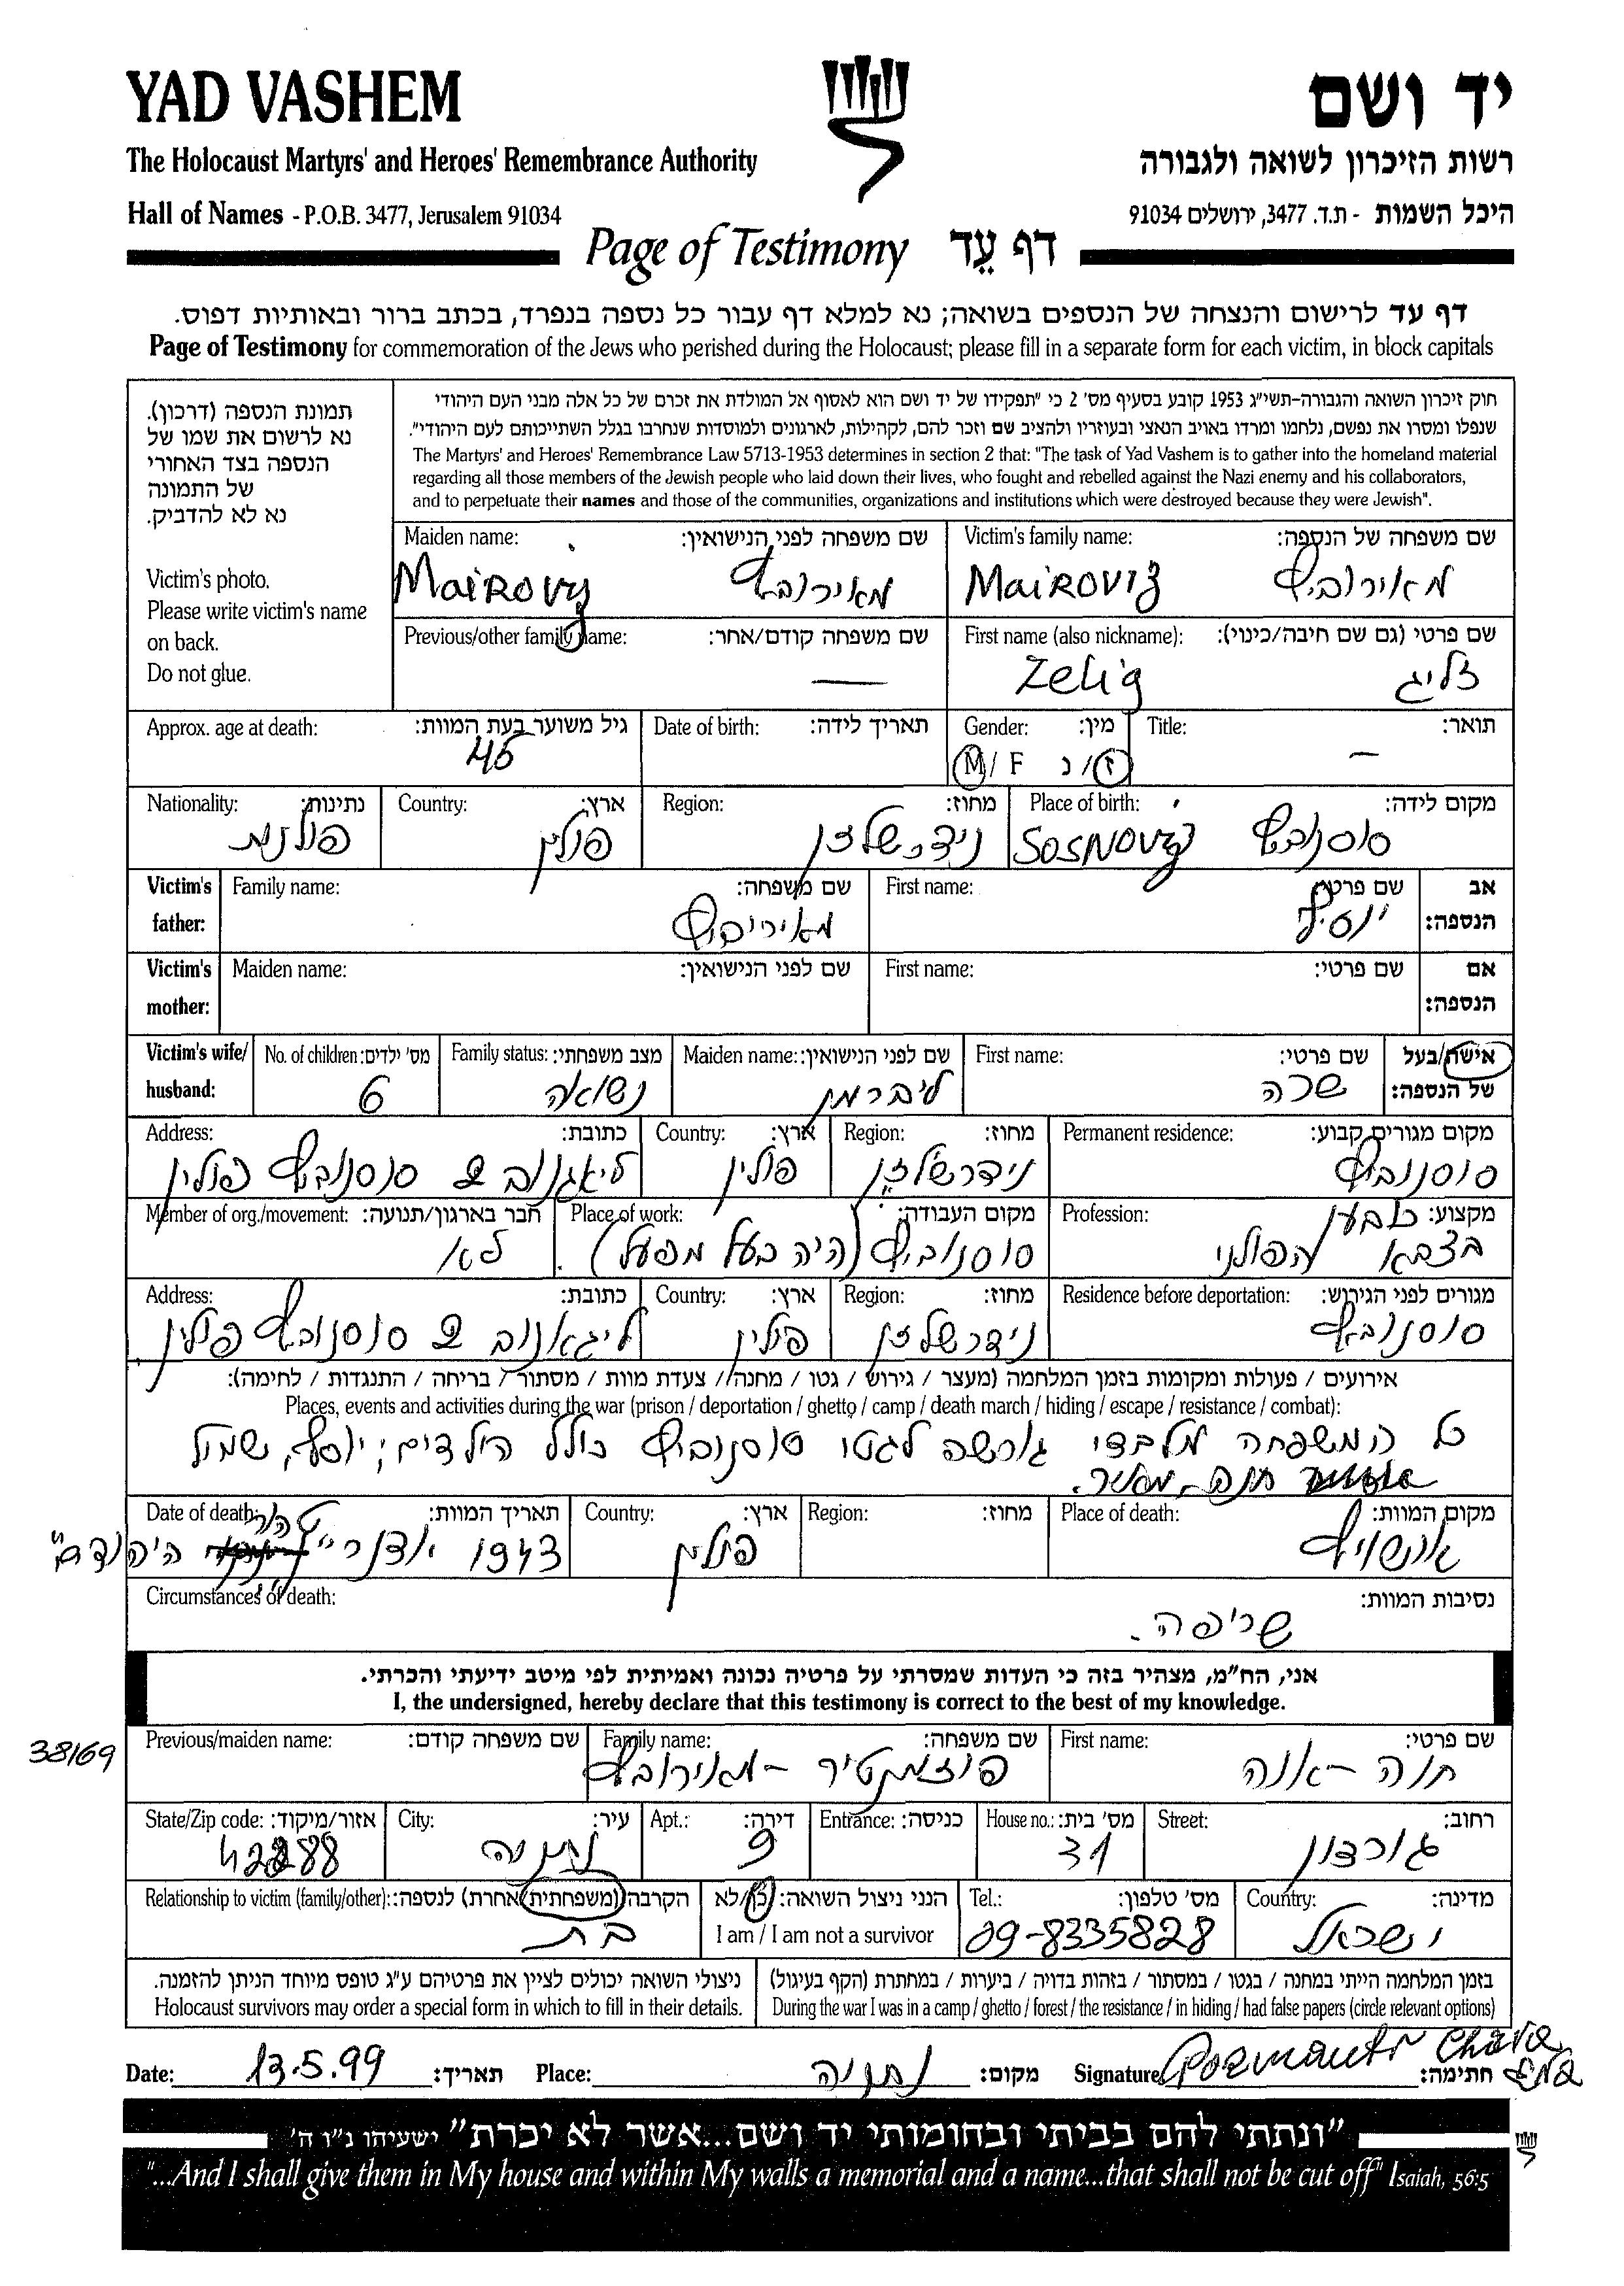 YAD VASHEM
יד ושם
The Holocaust Martyrs' and Heroes' Remembrance Authority
רשות הזיכרון לשואה ולגבורה
Hall of Names - P.O.B. 3477, Jerusalem 91034
היכל השמות - ת.ד. 3477, ירושלים 91034
Page of Testimony דף עֵד
דף עד לרישום והנצחה של הנספים בשואה; נא למלא דף עבור כל נספה בנפרד, בכתב ברור ובאותיות דפוס.
Page of Testimony for commemoration of the Jews who perished during the Holocaust; please fill in a separate form for each victim, in block capitals
תמונת הנספה (דרכון).
נא לרשום את שמו של
הנספה בצד האחורי
של התמונה
נא לא להדביק.
Victim's photo.
Please write victim's name
on back.
Do not glue.
חוק זיכרון השואה והגבורה-תשי"ג 1953 קובע בסעיף מס' 2 כי "תפקידו של יד ושם הוא לאסוף אל המולדת את זכרם של כל אלה מבני העם היהודי
שנפלו ומסרו את נפשם, נלחמו ומרדו באויב הנאצי ובעוזריו ולהציב שם וזכר להם, לקהילות, לארגונים ולמוסדות שנחרבו בגלל השתייכותם לעם היהודי".
The Martyrs' and Heroes' Remembrance Law 5713-1953 determines in section 2 that: "The task of Yad Vashem is to gather into the homeland material
regarding all those members of the Jewish people who laid down their lives, who fought and rebelled against the Nazi enemy and his collaborators,
and to perpetuate their names and those of the communities, organizations and institutions which were destroyed because they were Jewish".
Victim's family name: שם משפחה של הנספה:
Mairovız מאירוביץ
Maiden name: שם משפחה לפני הנישואין:
Mairovız מאירוביץ
First name (also nickname): שם פרטי (גם שם חיבה/כינוי):
Zelig זליג
Previous/other family name: שם משפחה קודם/אחר:
—
Title: תואר:
—
Gender: מין:
M / F ז / נ
Date of birth: תאריך לידה:
Approx. age at death: גיל משוער בעת המוות:
45
Place of birth: מקום לידה:
SOSNOVIZ סוסנוביץ
Region: מחוז:
נידרשלזן
Country: ארץ:
פולין
Nationality: נתינות:
פולנית
Victim's father: אב הנספה:
First name: שם פרטי:
יוסף
Family name: שם משפחה:
מאירוביץ
Victim's mother: אם הנספה:
First name: שם פרטי:
Maiden name: שם לפני הנישואין:
Victim's wife/husband: אישה/בעל של הנספה:
First name: שם פרטי:
שרה
Maiden name: שם לפני הנישואין:
ליברמן
Family status: מצב משפחתי:
נשואה
No. of children: מס' ילדים:
6
Permanent residence: מקום מגורים קבוע:
סוסנוביץ
Region: מחוז:
נידרשלזן
Country: ארץ:
פולין
Address: כתובת:
סוסנוביץ פולין
Profession: מקצוע:
בצבא הפולני
Place of work: מקום העבודה:
סוסנוביץ (היה בעל מפעל).
Member of org./movement: חבר בארגון/תנועה:
לא
Residence before deportation: מגורים לפני הגירוש:
סוסנוביץ
Region: מחוז:
נידרשלזן
Country: ארץ:
פולין
Address: כתובת:
סוסנוביץ פולין
אירועים / פעולות ומקומות בזמן המלחמה (מעצר / גירוש / גטו / מחנה / צעדת מוות / מסתור / בריחה / התנגדות / לחימה):
Places, events and activities during the war (prison / deportation / ghetto / camp / death march / hiding / escape / resistance / combat):
כל המשפחה מלבדי גורשה לגטו סוסנוביץ כולל הילדים; יוסף, שמואל
Place of death: מקום המוות:
אושוויץ
Region: מחוז:
Country: ארץ:
פולין
Date of death: תאריך המוות:
1943
Circumstances of death: נסיבות המוות:
שריפה.
אני, הח"מ, מצהיר בזה כי העדות שמסרתי על פרטיה נכונה ואמיתית לפי מיטב ידיעתי והכרתי.
I, the undersigned, hereby declare that this testimony is correct to the best of my knowledge.
38/69
First name: שם פרטי:
חנה - אנה
Family name: שם משפחה:
פוזמנטיר - מאירוביץ
Previous/maiden name: שם משפחה קודם:
Street: רחוב:
גורדון
House no.: מס' בית:
31
Entrance: כניסה:
Apt.: דירה:
9
City: עיר:
נתניה
State/Zip code: אזור/מיקוד:
42288
Country: מדינה:
ישראל
Tel.: מס' טלפון:
09-8335828
הנני ניצול השואה: כן/לא
I am / I am not a survivor
Relationship to victim (family/other): הקרבה (משפחתית/אחרת) לנספה:
בת
בזמן המלחמה הייתי במחנה / בגטו / במסתור / בזהות בדויה / ביערות / במחתרת (הקף בעיגול)
During the war I was in a camp / ghetto / forest / the resistance / in hiding / had false papers (circle relevant options)
ניצולי השואה יכולים לציין את פרטיהם ע"ג טופס מיוחד הניתן להזמנה.
Holocaust survivors may order a special form in which to fill in their details.
Date: 13.5.99 תאריך: Place: נתניה מקום: Signature חתימה:
"ונתתי להם בביתי ובחומותי יד ושם...אשר לא יכרת" ישעיהו נ"ו ה'
"...And I shall give them in My house and within My walls a memorial and a name...that shall not be cut off" Isaiah, 56:5